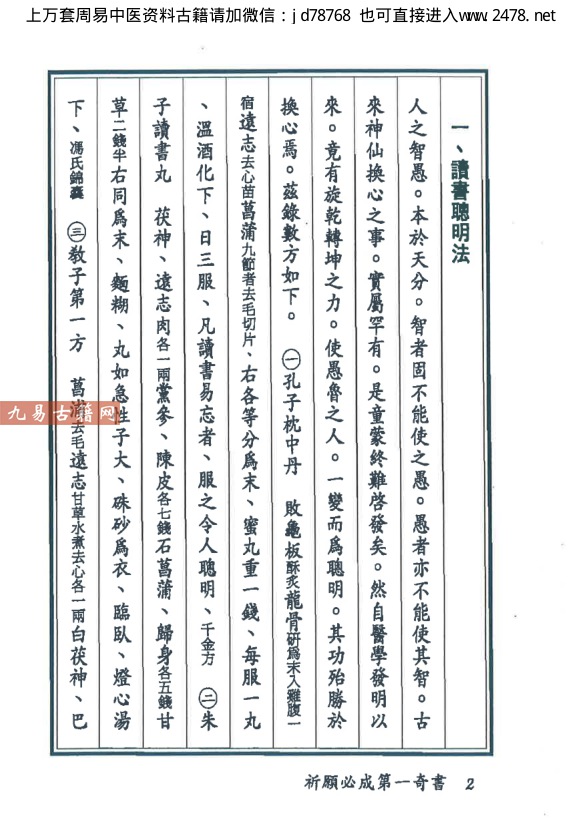 上万套周易中医资料古籍请加微信：jd78768 也可直接进入www.2478.net
一、讀書聰明法
人之智愚。本於天分。智者固不能使之愚。愚者亦不能使其智。古
來神仙換心之事。實屬罕有。是童蒙終難啓發矣。然自醫學發明以
來。竟有旋乾轉坤之力。使愚魯之人。一變而爲聰明。其功殆勝於
換心焉。茲錄數方如下。㊀孔子枕中丹 敗龜板酥炙龍骨研爲末入雞腹一
宿遠志去心苗菖蒲九節者去毛切片、右各等分爲末、蜜丸重一錢、每服一丸
、溫酒化下、日三服、凡讀書易忘者、服之令人聰明、千金方 ㊁朱
子讀書丸 茯神、遠志肉各一兩黨參、陳皮各七錢石菖蒲、歸身各五錢甘
草二錢半右同爲末、麵糊、丸如急性子大、硃砂爲衣、臨臥、燈心湯
下、馮氏錦囊 ㊂敎子第一方 菖蒲去毛遠志甘草水煮去心各一兩白茯神、巴
九易古籍网
祈願必成第一奇書 2